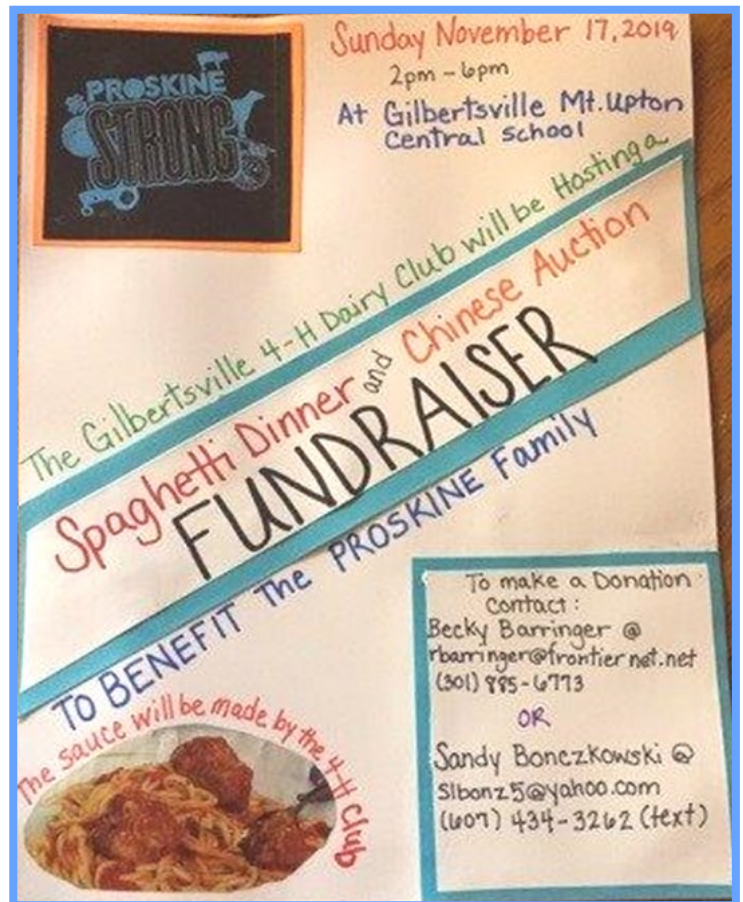 PROSKINE
STRONG
Sunday November 17, 2019
2pm - 6pm
At Gilbertsville Mt. Upton
Central School
The Gilbertsville 4-H Dairy Club will be Hosting a
Spaghetti Dinner and Chinese Auction
FUNDRAISER
TO BENEFIT The PROSKINE Family
The sauce will be made by the 4-H Club
To make a Donation
Contact:
Becky Barringer @
rbarringer@frontiernet.net
(301) 885-6773
OR
Sandy Bonczkowski @
slbonz5@yahoo.com
(607) 434-3262 (text)